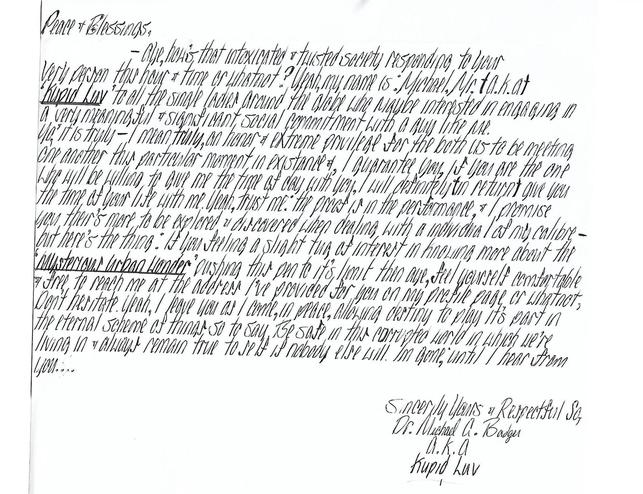 Peace & Blessings,
- Aye, how's that intoxicated & twisted society responding to your
very person this hour & time or whatnot? Yeah, my name is: Michael, Mr. a.k.a
"Kupid Luv" to all the single ladies around the globe who maybe interested in engaging in
a very meaningful & significant social commitment with a guy like me.
Ya, it is truly - I mean truly, an honor & extreme privilege for the both us to be meeting
one another this particular moment in existance &, I guarantee you, if you are the one
who will be willing to give me the time of day with you, I will definitely in return give you
the time of your life with me. Yeah, trust me: the proof is in the performance, & I promise
you, there's more to be explored & discovered when dealing with a individual of my calibre -
but here's the thing: If you feeling a slight tug of interest in knowing more about the
"Mysterious Urban Wonder" pushing this pen to it's limit than aye, feel yourself comfortable
& free to reach me at the address I've provided for you on my profile page, or whatnot,
Don't hesitate. Yeah, I leave you as I come, in peace, allowing destiny to play it's part in
the eternal scheme of things so to say, Be safe in this corrupted world in which we're
living in & always remain true to self if nobody else will. I'm gone, until I hear from
you....
Sincerly Yours & Respectful So,
Dr. Michael A. Badger
a.k.a
Kupid Luv